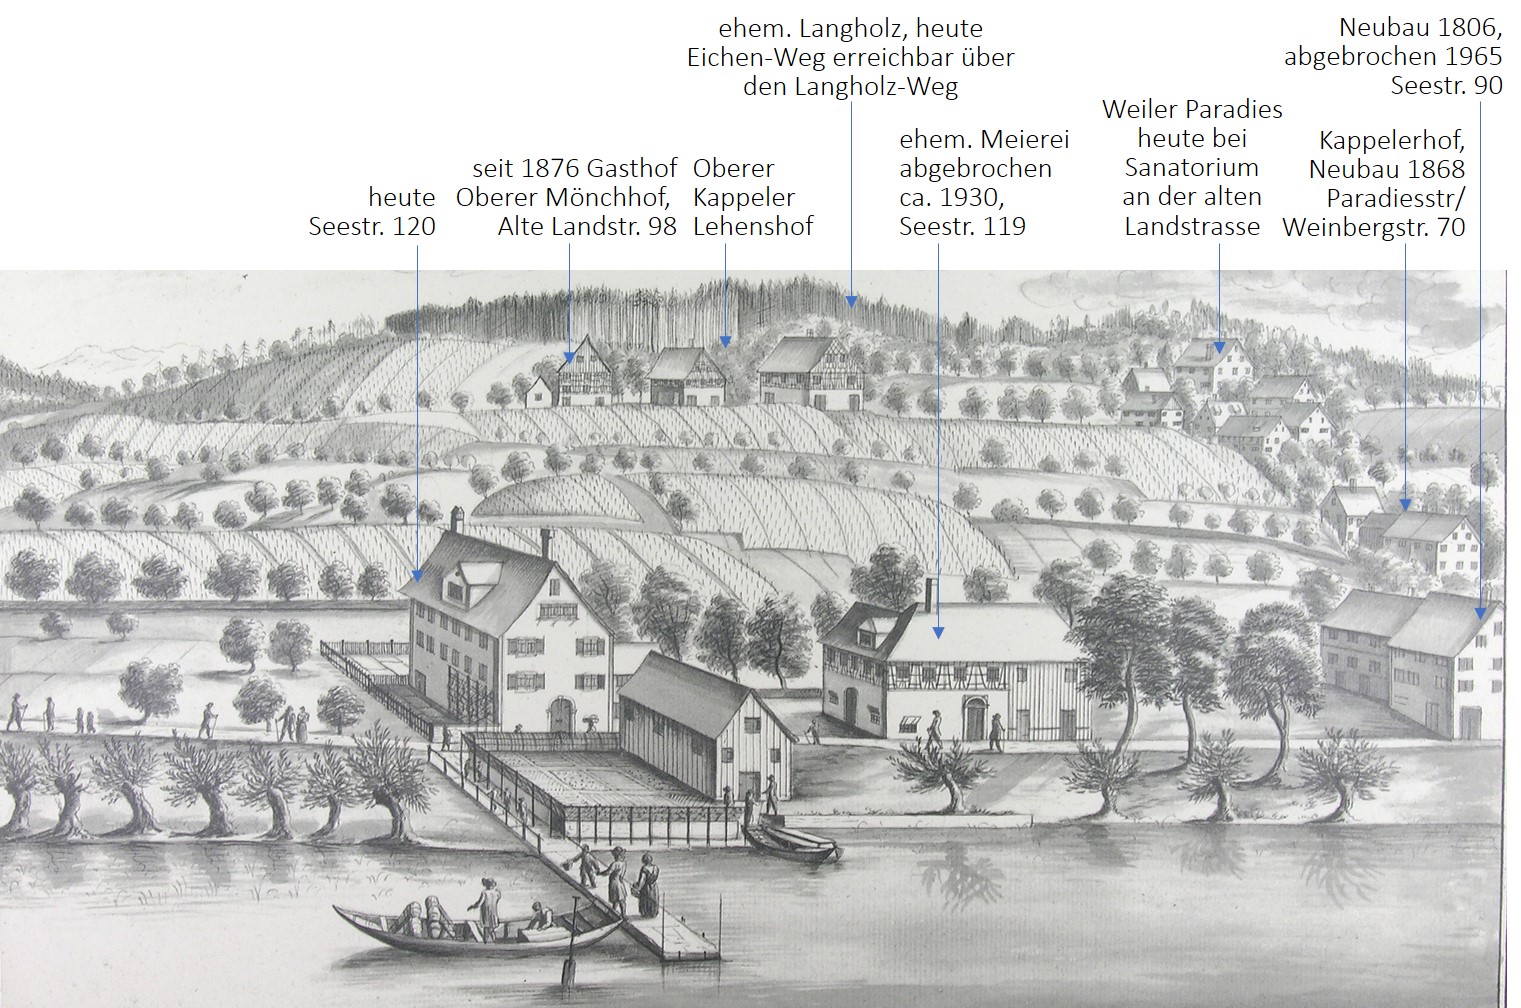 ehem. Langholz, heute
Eichen-Weg erreichbar über
den Langholz-Weg
Neubau 1806,
abgebrochen 1965
Seestr. 90
heute
Seestr. 120
seit 1876 Gasthof
Oberer Mönchhof,
Alte Landstr. 98
Oberer
Kappeler
Lehenshof
ehem. Meierei
abgebrochen
ca. 1930,
Seestr. 119
Weiler Paradies
heute bei
Sanatorium
an der alten
Landstrasse
Kappelerhof,
Neubau 1868
Paradiesstr/
Weinbergstr. 70